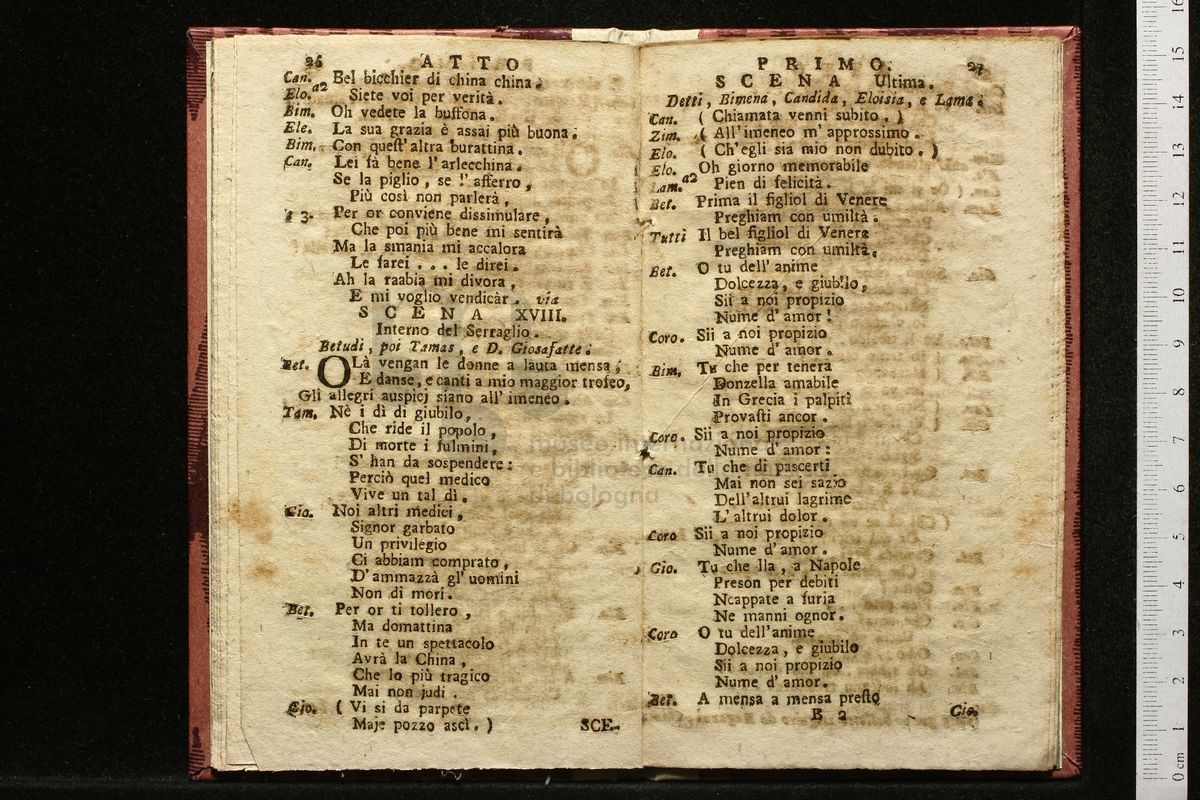 26 ATTO
Can. Bel bicchier di china china.
Elo. a2 Siete voi per verità.
Bim. Oh vedete la buffona.
Ele. La sua grazia è assai più buona.
Bim. Con quest'altra burattina.
Can. Lei fà bene l'arlecchina.
Se la piglio, se l'afferro,
Più così non parlerà,
a 3. Per or conviene dissimulare,
Che poi più bene mi sentirà
Ma la smania mi accalora
Le farei . . . le direi.
Ah la raabia mi divora,
E mi voglio vendicàr. via
SCENA XVIII.
Interno del Serraglio.
Betudi, poi Tamas, e D. Giosafatte.
Bet. OLà vengan le donne a lauta mensa;
E danse, e canti a mio maggior trofeo,
Gli allegri auspicj siano all'imeneo.
Tam. Nè i dì di giubilo,
Che ride il popolo,
Di morte i fulmini,
S'han da sospendere:
Perciò quel medico
Vive un tal dì.
Gio. Noi altri medici,
Signor garbato
Un privilegio
Ci abbiam comprato,
D'ammazzà gl'uomini
Non di mori.
Bet. Per or ti tollero,
Ma domattina
In te un spettacolo
Avrà la China,
Che lo più tragico
Mai non judi.
Gio. ( Vi si da parpete
Maje pozzo ascì. )
SCE-
PRIMO. 27
SCENA Ultima.
Detti, Bimena, Candida, Eloisia, e Lama.
Can. ( Chiamata venni subito. )
Zim. ( All'imeneo m'approssimo.
Elo. ( Ch'egli sia mio non dubito. )
Elo. Oh giorno memorabile
Lam. a2 Pien di felicità.
Bet. Prima il figliol di Venere
Preghiam con umiltà.
Tutti Il bel figliol di Venere
Preghiam con umiltà,
Bet. O tu dell'anime
Dolcezza, e giubilo,
Sii a noi propizio
Nume d'amor!
Coro. Sii a noi propizio
Nume d'amor.
Bim. Tu che per tenera
Donzella amabile
In Grecia i palpiti
Provasti ancor.
Coro. Sii a noi propizio
Nume d'amor:
Can. Tu che di pascerti
Mai non sei sazio
Dell'altrui lagrime
L'altrui dolor.
Coro Sii a noi propizio
Nume d'amor.
Gio. Tu che lla, a Napole
Preson per debiti
Ncappate a furia
Ne manni ognor.
Coro O tu dell'anime
Dolcezza, e giubilo
Sii a noi propizio
Nume d'amor.
Bet. A mensa a mensa presto
B 2 Gio.
museo internazionale
e biblioteca della musica
di bologna
0 cm 1 2 3 4 5 6 7 8 9 10 11 12 13 14 15 16